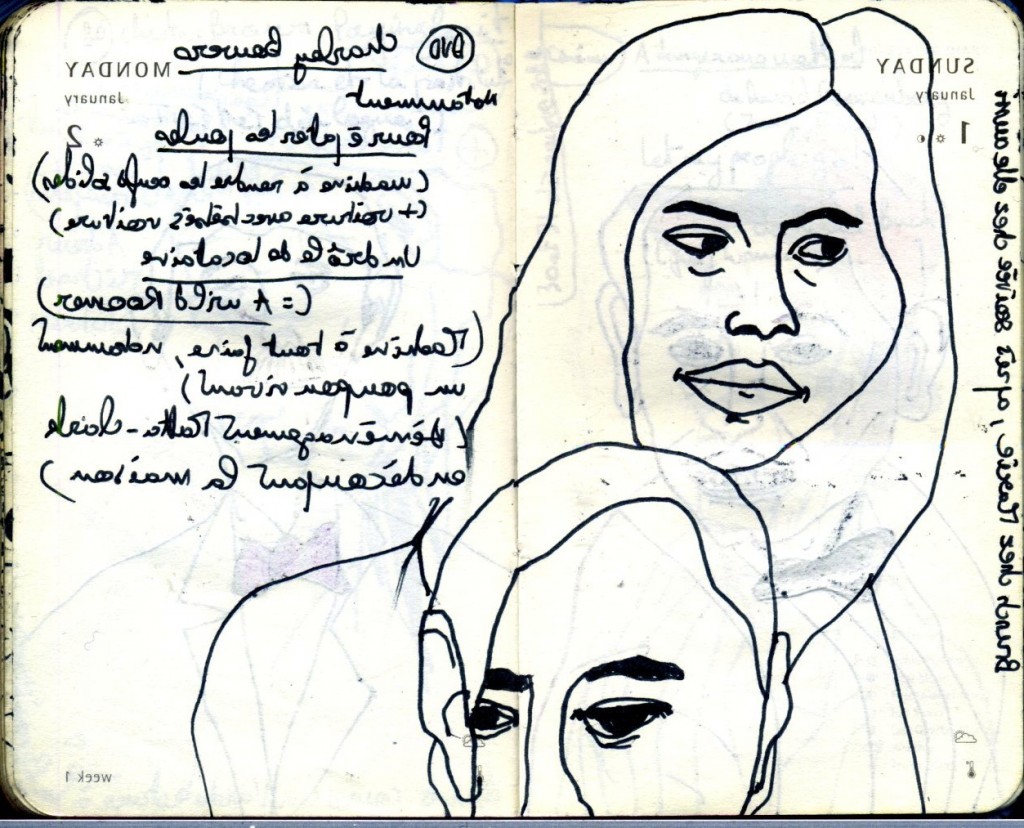 SUNDAY
January
1
MONDAY
January
2
DVD Charley Bowers
Notamment
Pour épater les poules
(machine à rendre les oeufs solides)
(+ voiture avec bébés voiture)
Un drôle de locataire
(= A wild Roomer)
(Machine à tout faire, notamment
un poupon vivant)
(Déménagement
en découpant la maison)
Brunch chez, après soirée chez elle
week 1